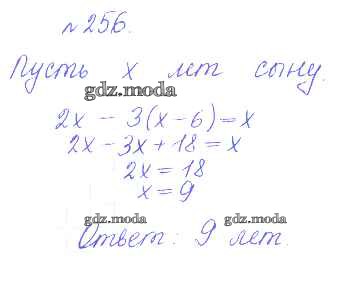 №256.
Пусть x лет сыну.
gdz.moda
2x - 3(x-6) = x
2x - 3x + 18 = x
2x = 18
x = 9
gdz.moda gdz.moda
Ответ: 9 лет.